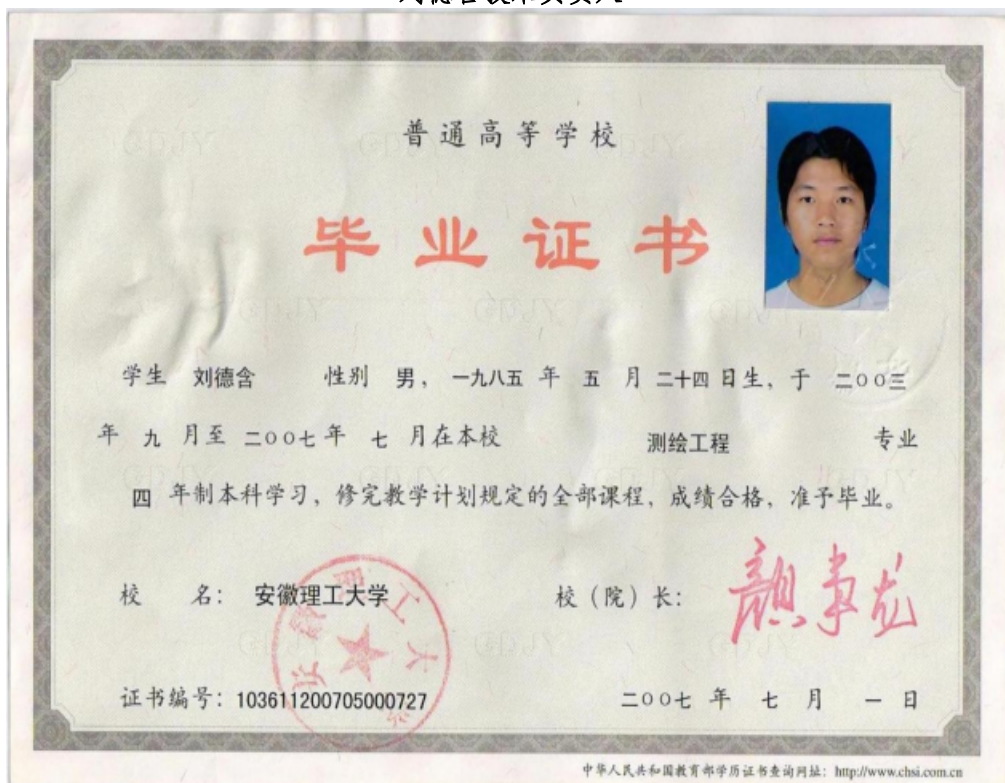 普通高等学校
毕业证书
学生 刘德含 性别 男，一九八五 年 五 月 二十四 日生，于 二００三
年 九 月至 二００七 年 七 月在本校 测绘工程 专业
四 年制本科学习，修完教学计划规定的全部课程，成绩合格，准予毕业。
校 名： 安徽理工大学 校（院）长：
证书编号：103611200705000727 二００七 年 七 月 一 日
中华人民共和国教育部学历证书查询网址：http://www.chsi.com.cn